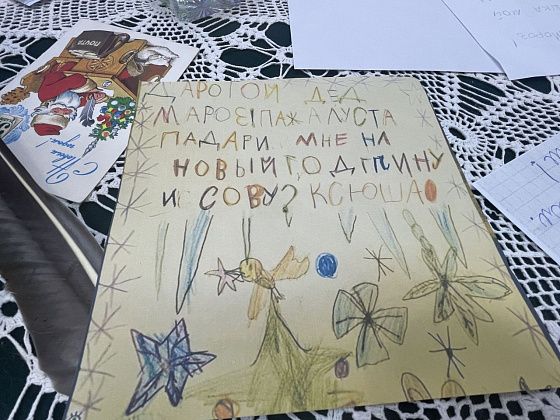 ДАРОГОЙ ДЕД
МАРОЗ! ПАЖАЛУСТА
ПАДАРИ МНЕ НА
НОВЫЙ ГОД ГЛИНУ
И СОВУ? КСЮША
ПОЧТА
С Новым
годом!